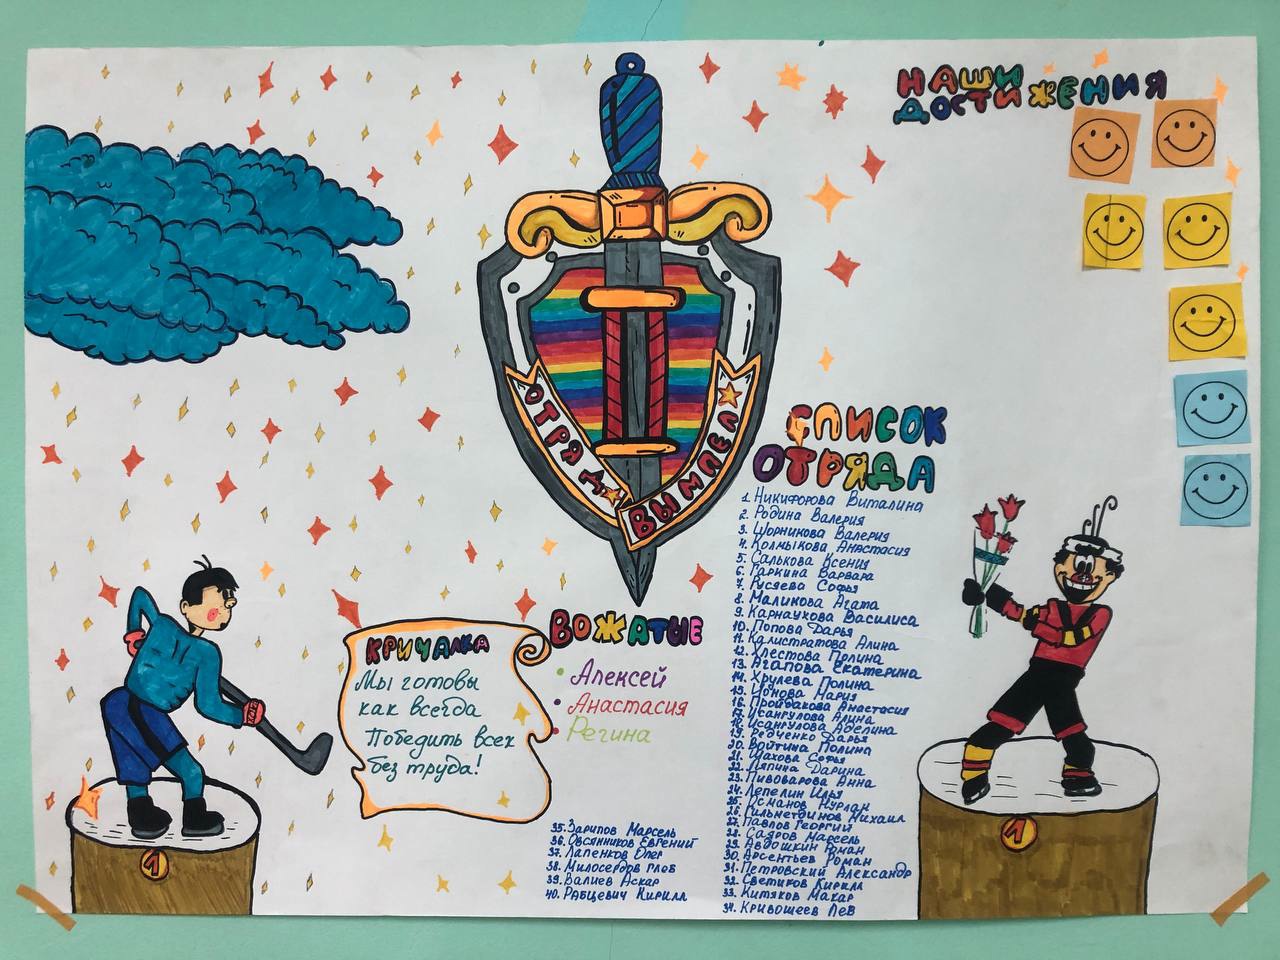 НАШИ
ДОСТИЖЕНИЯ
ОТРЯД
ВЫМПЕЛ
СПИСОК
ОТРЯДА
1. Никифорова Виталина
2. Родина Валерия
3. Шорникова Валерия
4. Колмыкова Анастасия
5. Салькова Есения
6. Гаркина Варвара
7. Русяева Софья
8. Маликова Агата
9. Карнаухова Василиса
10. Попова Дарья
11. Калистратова Алина
12. Хлестова Полина
13. Агапова Екатерина
14. Хрулева Полина
15. Ионова Мария
16. Пройдакова Анастасия
17. Исангулова Алина
18. Исангулова Аделина
19. Редченко Дарья
20. Войтина Полина
21. Шахова Софья
22. Ляпина Дарина
23. Пивоварова Анна
24. Лепелин Илья
25. Османов Нурлан
26. Кильметдинов Михаил
27. Павлов Георгий
28. Садров Марсель
29. Авдошкин Роман
30. Арсентьев Роман
31. Петровский Александр
32. Светиков Кирилл
33. Китяков Макар
34. Кривошеев Лев
35. Зарипов Марсель
36. Овсянников Евгений
37. Лапенков Олег
38. Милосердов Глеб
39. Валиев Аскар
40. Рабцевич Кирилл
ВОЖАТЫЕ
• Алексей
• Анастасия
• Регина
КРИЧАЛКА
Мы готовы
как всегда
Победить всех
без труда!
1
1